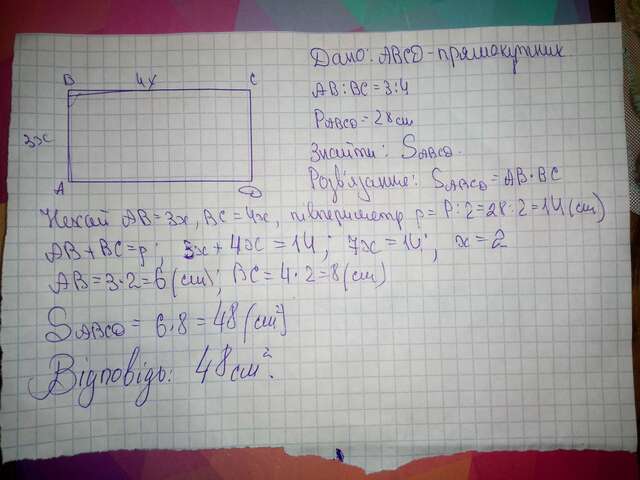 B 4x C
3x
A D
Дано: ABCD - прямокутник
AB:BC=3:4
PABCD=28см
Знайти: SABCD.
Розв'язання: SABCD=AB·BC
Нехай AB=3x, BC=4x, півпериметр p=P:2=28:2=14(см)
AB+BC=p; 3x+4x=14; 7x=14; x=2
AB=3·2=6(см); BC=4·2=8(см)
SABCD=6·8=48(см²)
Відповідь: 48см².